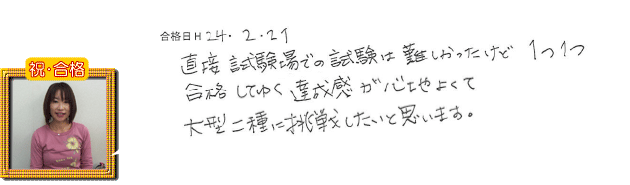 合格日H24.2.21
直接試験場での試験は難しかったけど 1つ1つ
合格してゆく達成感が心地よくて
大型二種に挑戦したいと思います。
祝・合格